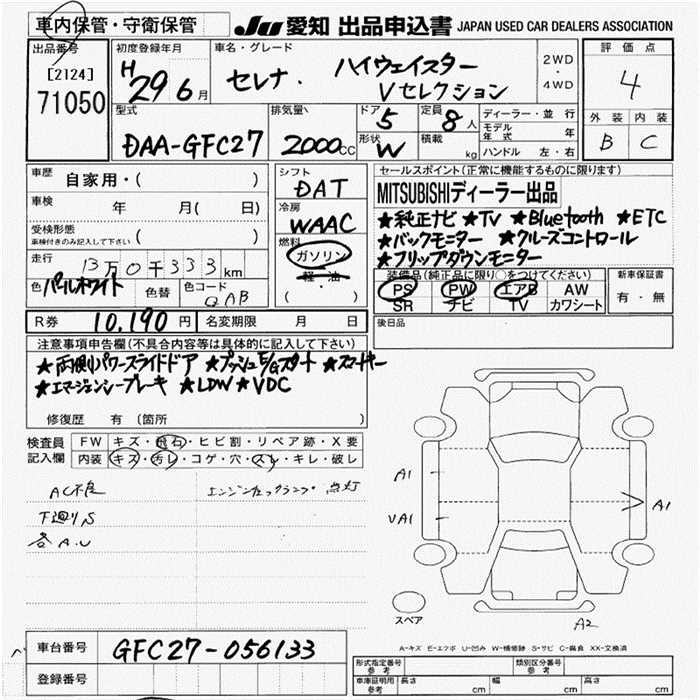 車内保管・守衛保管
JU 愛知 出品申込書 JAPAN USED CAR DEALERS ASSOCIATION
出品番号
[2124]
71050
初度登録年月
H29 6月
車名・グレード
セレナ. ハイウェイスター
Vセレクション
2WD
・
4WD
評価点
4
外装 内装
B C
型式
DAA-GFC27
排気量
2000cc
ドア 5
形状 W
定員 8人
積載 kg
ディーラー・並行
モデル年式 年
ハンドル 左・右
車歴 自家用・( )
車検 年 月( 日)
受検形態
車検付きのみ記入して下さい ( )
走行 13万0千333km
色 パールホワイト 色替 色コード QAB
シフト
DAT
冷房
WAAC
燃料
ガソリン
軽・油
( )
セールスポイント(正常に機能するものに限ります)
MITSUBISHIディーラー出品
★純正ナビ ★TV ★Bluetooth ★ETC
★バックモニター ★クルーズコントロール
★フリップダウンモニター
装備品(純正品に限り○をつけてください)
PS PW エアB AW
SR ナビ TV カワシート
新車保証書
有・無
R券 10,190円 名変期限 月 日
後日品
注意事項申告欄(不具合内容等は具体的に記入して下さい)
★両側パワースライドドア ★プッシュE/Gスタート ★スマートキー
★エマージェンシーブレーキ ★LDW ★VDC
修復歴 有(箇所 )
検査員記入欄
FW キズ・飛石・ヒビ割・リペア跡・X要
内装 キズ・汚レ・コゲ・穴・スレ・キレ・破レ
AC不良
エンジンチェックランプ 点灯
下廻りS
各A.U
A1
VA1
A1
スペア
A2
A-キズ E-エクボ U-凹み W-補修跡 S-サビ C-腐食 XX-交換済
車台番号 GFC27-056133
登録番号
形式指定番号 参考
類別区分番号 参考
車庫証明用 参考 長さ cm 幅 cm 高さ cm